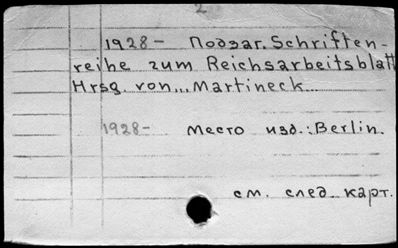 2
1928- Подзаг. Schriften-
reihe zum Reichsarbeitsblatt
Hrsg. von... Martineck...
1928- Место изд.: Berlin.
см. след. карт.